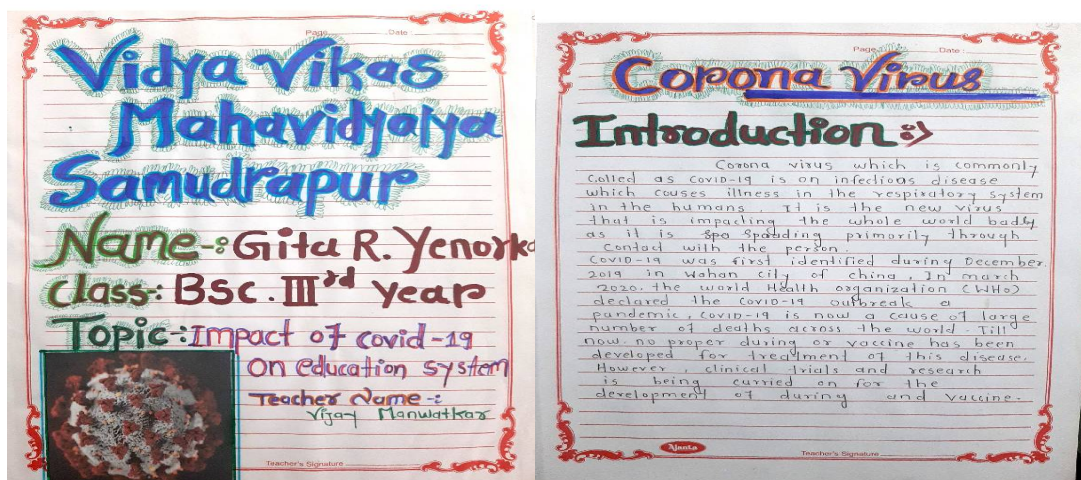 Page Date :
Vidya Vikas
Mahavidyalya
Samudrapur
Name-: Gita R. Yenorka
Class:- BSc. III rd year
Topic:- Impact of covid-19
on education system
Teacher Name -:
Vijay Manwatkar
Teacher's Signature
Page Date :
Corona Virus
Introduction :-)
Corona virus which is commonly
Called as COVID-19 is on infectioas disease
which couses illness in the respiratory system
in the humans. It is the new virus
that is impacting the whole world badly
as it is spo spouding primorily through
Contact with the person.
COVID-19 was first identified during December.
2019 in Wahan city of china. In march
2020. the world Health organization (WHO)
declared the COVID-19 outbreak a
pandemic, COVID-19 is now a cause of large
number of deaths across the world. Till
now. no proper during or vaccine has been
developed for treatment of this disease.
However, clinical trials and research
is being curried on for the
development of during and vaccine.
Ajanta
Teacher's Signature